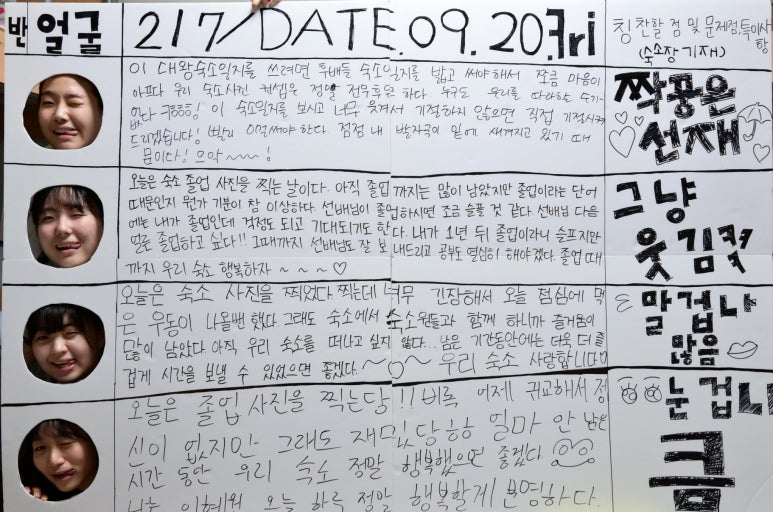 반 얼굴 217/DATE.09.20.Fri 칭찬할 점 및 문제점, 특이사항
(숙소장 기재)
이 대왕숙소일지를 쓰려면 후배들 숙소일지를 밟고 써야해서 조금 마음이
아프다 우리 숙소사진 컨셉은 정말 전무후무 하다 누구도 우리를 따라할 수가
없다 이 숙소일지를 보시고 너무 웃겨서 기절하지 않으면 직접 기절시켜
드리겠습니다! 빨리 써야 한다. 점점 내 발자국이 밑에 새겨지고 있기 때
문이다! 으악~~~!
짝꿍은
선재
오늘은 숙소 졸업 사진을 찍는 날이다. 아직 졸업까지는 많이 남았지만 졸업이라는 단어
때문인지 뭔가 기분이 참 이상하다. 선배님이 졸업하시면 조금 슬플 것 같다. 선배님 다음
에는 내가 졸업인데 걱정도 되고 기대되기도 한다. 내가 1년 뒤 졸업이라니 슬프지만
얼른 졸업하고 싶다!! 그때까지 선배님도 잘 보내드리고 공부도 열심히 해야겠다. 졸업 때
까지 우리 숙소 행복하자 ~ ~ ~ ♡
그냥
웃김 컷
오늘은 숙소 사진을 찍었다. 찍는데 너무 긴장해서 오늘 점심에 먹
은 우동이 나올뻔 했다. 그래도 숙소에서 숙소원들과 함께 하니까 즐거움이
많이 남았다. 아직 우리 숙소를 떠나고 싶지 않다... 남은 기간동안에는 더욱 더 즐
겁게 시간을 보낼 수 있었으면 좋겠다. 우리 숙소 사랑합니다♡
말 겁나
많음
오늘은 졸업 사진을 찍는당!! 비록 어제 귀교해서 정
신이 없지만 그래도 재미있당 ㅎㅎ 얼마 안 남은
시간 동안 우리 숙소 정말 행복했으면 좋겠다
오늘 하루 정말 행복할게 분명하다.
눈 겁나
큼